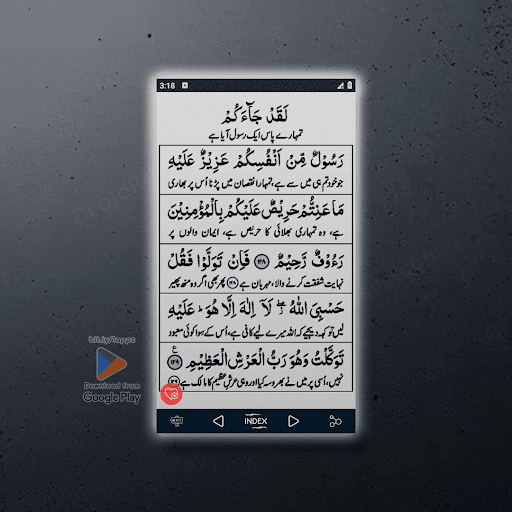 3:18
لَقَدْ جَآءَكُمْ
تمہارے پاس ایک رسول آیا ہے
رَسُوْلٌ مِّنْ اَنْفُسِكُمْ عَزِيْزٌ عَلَيْهِ
جو خود تم ہی میں سے ہے، تمہارا نقصان میں پڑنا اُس پر بھاری
مَا عَنِتُّمْ حَرِيْصٌ عَلَيْكُمْ بِالْمُؤْمِنِيْنَ
ہے، وہ تمہاری بھلائی کا حریص ہے، ایمان والوں پر
رَءُوْفٌ رَّحِيْمٌ ﴿۱۲۸﴾ فَاِنْ تَوَلَّوْا فَقُلْ
نہایت شفقت کرنے والا، مہربان ہے ﴿۱۲۸﴾ پھر بھی اگر وہ منھ پھیر
حَسْبِيَ اللّٰهُ ۖ لَآ اِلٰهَ اِلَّا هُوَ ؕ عَلَيْهِ
لیں تو کہہ دیجیے کہ اللہ میرے لیے کافی ہے، اُس کے سوا کوئی معبود
تَوَكَّلْتُ وَهُوَ رَبُّ الْعَرْشِ الْعَظِيْمِ ﴿۱۲۹﴾ ع
نہیں، اُسی پر میں نے بھروسہ کیا اور وہی عرشِ عظیم کا مالک ہے
INDEX
EXIT
bit.ly/1apps
Download from
Google Play